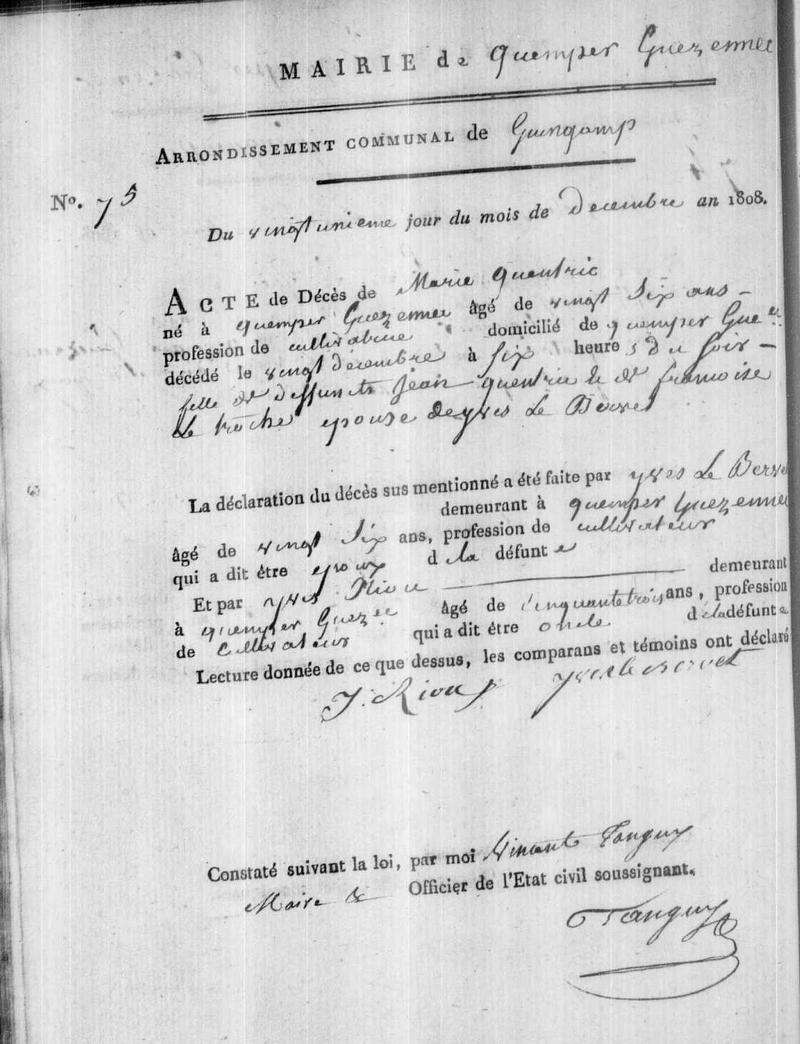 MAIRIE de quemper Guezennec
ARRONDISSEMENT COMMUNAL de Guingamp
No. 75
Du vingt unieme jour du mois de Decembre an 1808.
ACTE de Décès de Marie quentric
né à quemper Guezennec âgé de vingt Six ans —
profession de cultivatrice domicilié de quemper Gue ec
décédé le vingt décembre à Six heures du Soir —
fille de deffunts Jean quentric & de francoise
Le troche epouse de yves Le Berver
La déclaration du décès sus mentionné a été faite par yves Le Berver
demeurant à quemper Guezennec
âgé de vingt Six ans, profession de cultivateur
qui a dit être epoux d la défunte
Et par yves Riou demeurant
à quemper Guez ec âgé de Cinquante trois ans, profession
de Cultivateur qui a dit être oncle de la défunte
Lecture donnée de ce que dessus, les comparans et témoins ont déclaré
Y. Riou yves le berver
Constaté suivant la loi, par moi Vincent Tanguy
Maire & Officier de l'Etat civil soussignant.
Tanguy